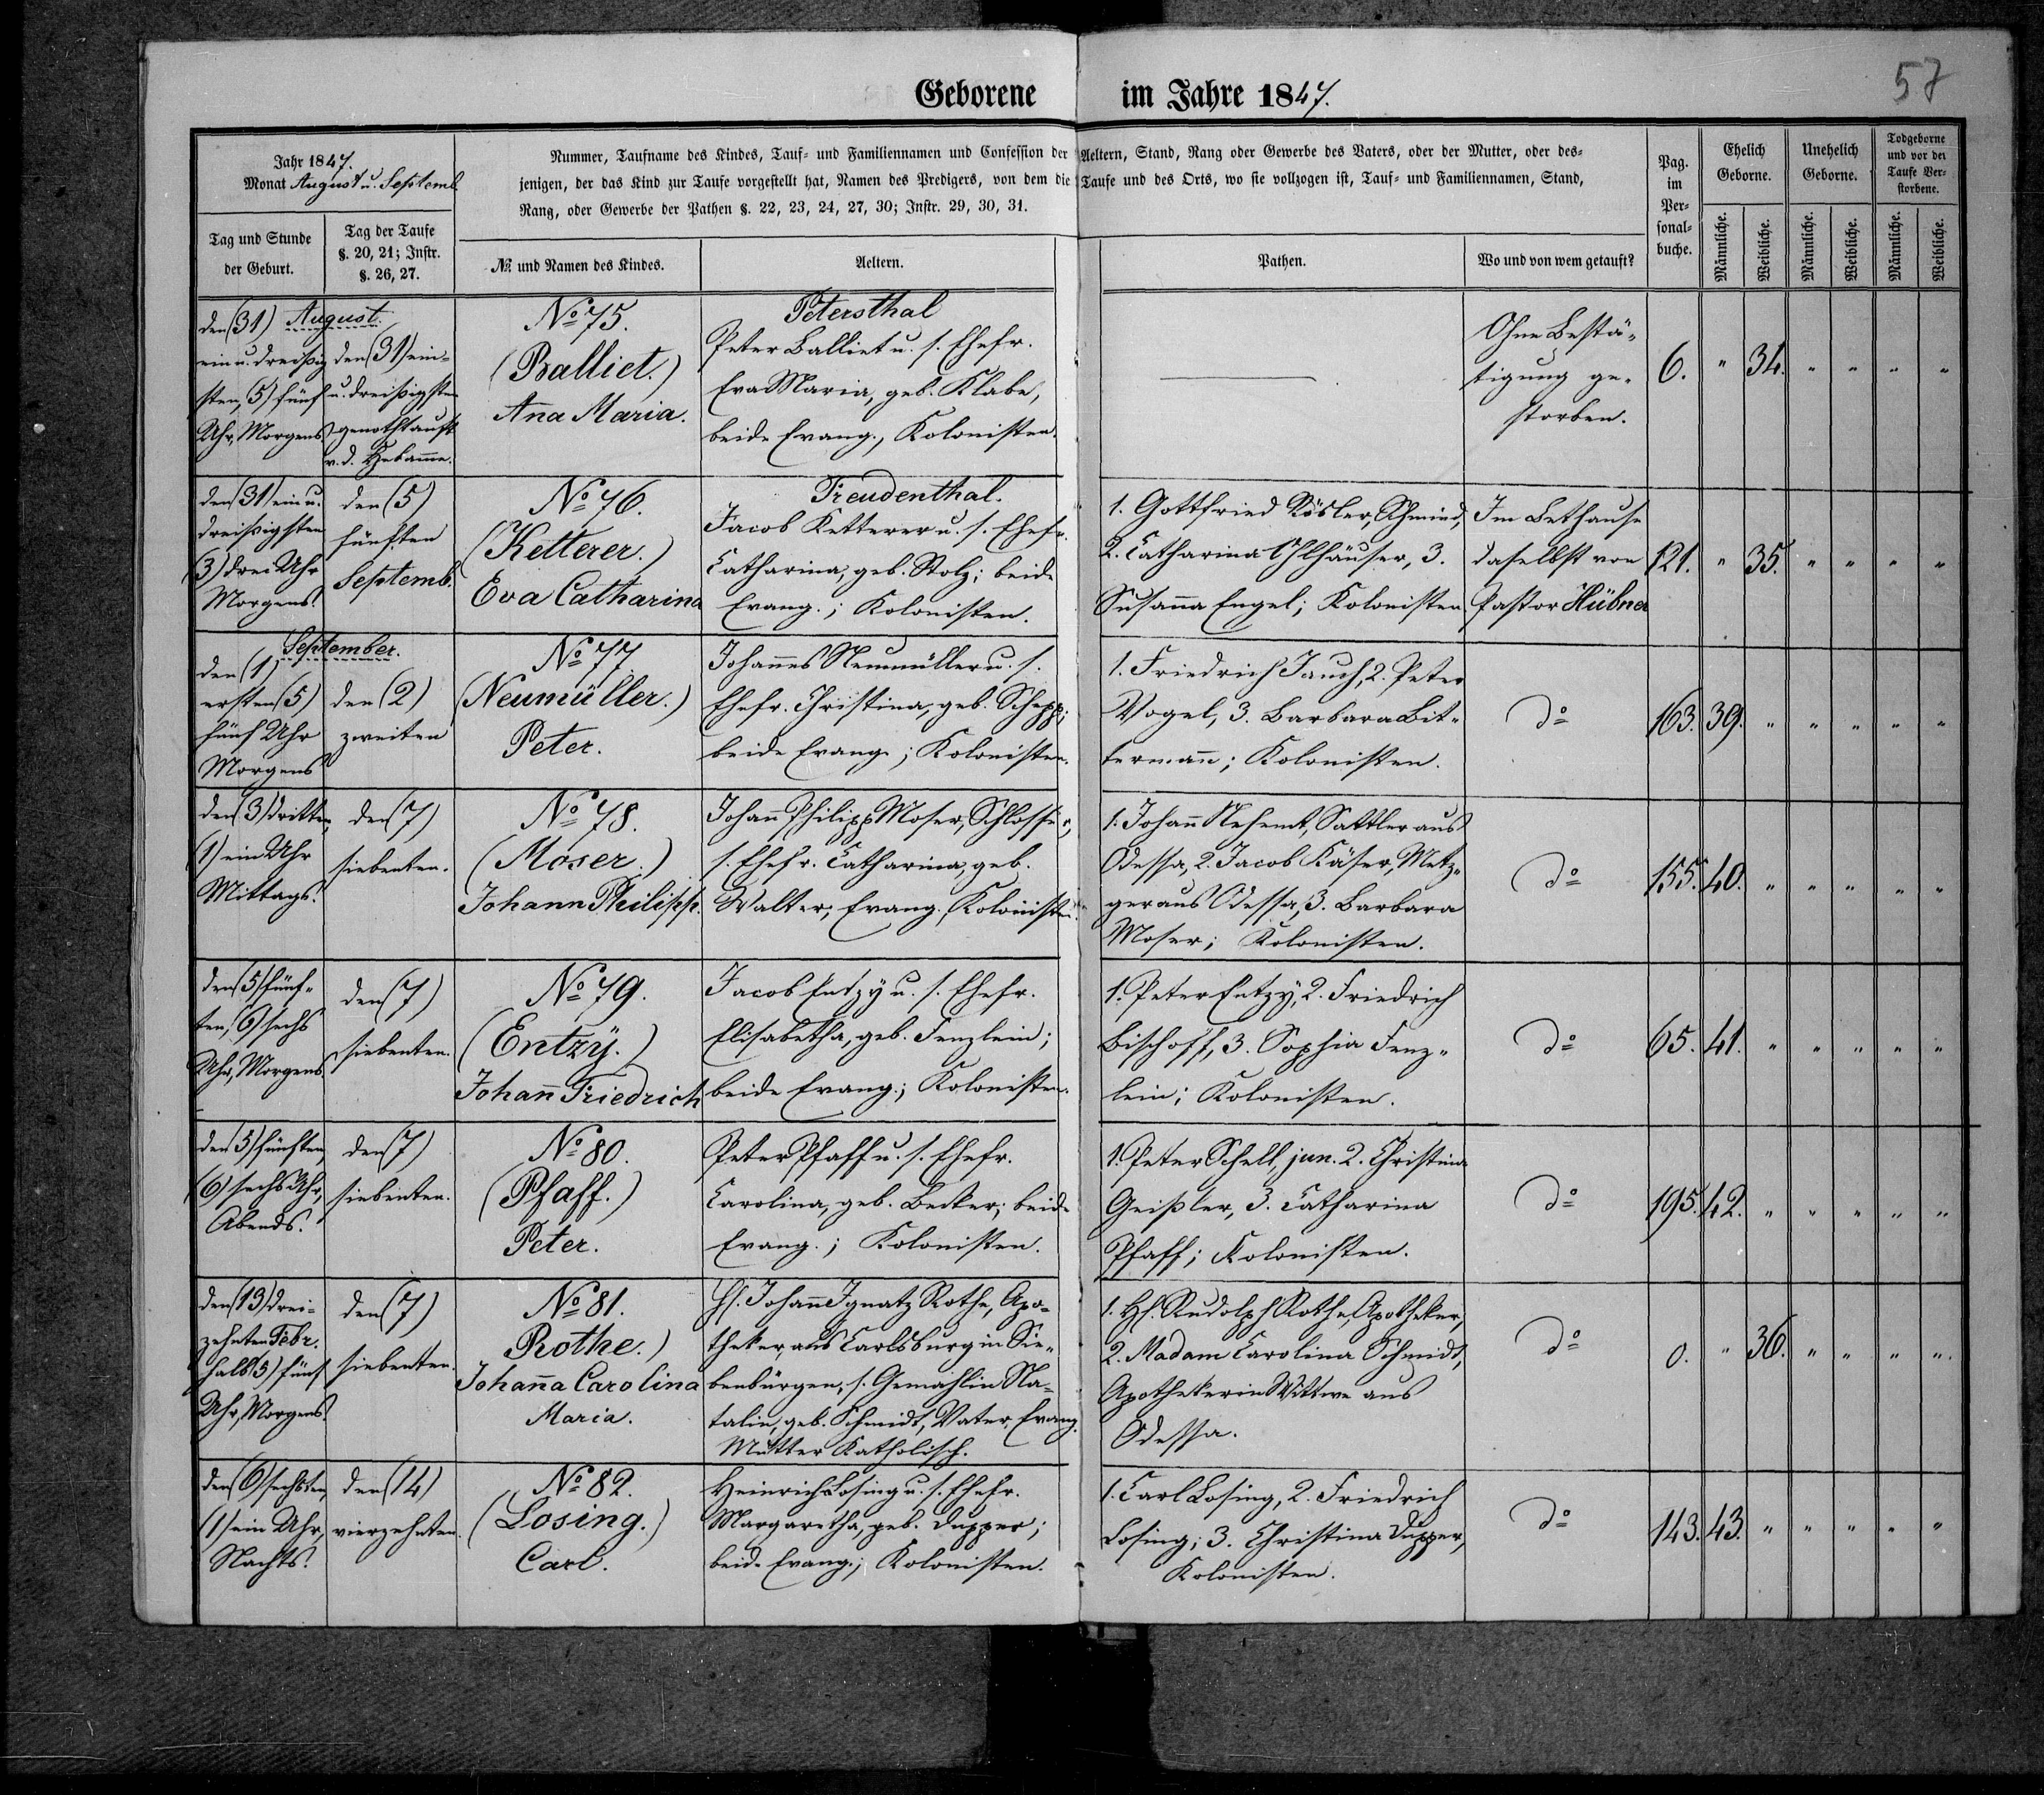 57
Geborene im Jahre 1847.
Jahr 1847.
Monat August u. Septemb.
Nummer, Taufname des Kindes, Tauf- und Familiennamen und Confession der Aeltern, Stand, Rang oder Gewerbe des Vaters, oder der Mutter, oder des-
jenigen, der das Kind zur Taufe vorgestellt hat, Namen des Predigers, von dem die Taufe und des Orts, wo sie vollzogen ist, Tauf- und Familiennamen, Stand,
Rang, oder Gewerbe der Pathen §. 22, 23, 24, 27, 30; Instr. 29, 30, 31.
Tag und Stunde
der Geburt.
Tag der Taufe
§. 20, 21; Instr.
§. 26, 27.
№ und Namen des Kindes.
Aeltern.
Pathen.
Wo und von wem getauft?
Pag.
im
Per-
sonal-
buche.
Ehelich
Geborne.
Unehelich
Geborne.
Todgeborne
und vor der
Taufe Ver-
storbene.
Männliche.
Weibliche.
Männliche.
Weibliche.
Männliche.
Weibliche.
August.
den (31)
ein u. dreißig
sten, 5) fünf
Uhr, Morgens
den (31) ein-
u. dreißigsten
genothtauft
v. d. Hebamme.
No 75.
(Balliet.)
Ana Maria.
Petersthal
Peter Balliet u. s. Ehefr.
Eva Maria, geb. Klabe,
beide Evang., Kolonisten.
Ohne Bestä-
tigung ge-
storben.
6. " 34. " " " "
den (31) ein u.
dreißigsten
(3) drei Uhr
Morgens.
den (5)
fünften
Septemb.
No 76.
(Ketterer.)
Eva Catharina
Freudenthal.
Jacob Ketterer u. s. Ehefr.
Catharina, geb. Stolz; beide
Evang.; Kolonisten.
1. Gottfried Rösler, Schmied,
2. Catharina Ohlhäuser, 3.
Susanna Engel; Kolonisten
Im Bethause
daselbst von
Pastor Hübner
121. " 35. " " " "
September.
den (1)
ersten (5)
fünf Uhr
Morgens
den (2)
zweiten
No 77
(Neumüller.)
Peter.
Johannes Neumüller u. s.
Ehefr. Christina, geb. Schepp;
beide Evang.; Kolonisten.
1. Friedrich Jauch, 2. Peter
Vogel, 3. Barbara Bit-
termann; Kolonisten.
do
163. 39. " " " " "
den (3) dritten,
(1) ein Uhr
Mittags.
den (7)
siebenten.
No 78.
(Moser.)
Johann Philipp.
Johann Philipp Moser, Schlosser,
s. Ehefr. Catharina, geb.
Walter; Evang. Kolonisten.
1. Johann Nehemt, Sattler aus
Odessa, 2. Jacob Käser, Metz-
ger aus Odessa, 3. Barbara
Moser; Kolonisten.
do
155. 40. " " " " "
den (5) fünf-
ten, (6) sechs
Uhr, Morgens
den (7)
siebenten.
No 79.
(Entzÿ.)
Johann Friedrich
Jacob Entzÿ u. s. Ehefr.
Elisabetha, geb. Fenzlein;
beide Evang.; Kolonisten.
1. Peter Entzÿ, 2. Friedrich
Bischoff, 3. Sophia Fenz-
lein; Kolonisten.
do
65. 41. " " " " "
den (5) fünften,
(6) sechs Uhr,
Abends.
den (7)
siebenten.
No 80.
(Pfaff.)
Peter.
Peter Pfaff u. s. Ehefr.
Carolina, geb. Becker; beide
Evang.; Kolonisten.
1. Peter Schell, jun. 2. Christina
Geißler, 3. Catharina
Pfaff; Kolonisten.
do
195. 42. " " " " "
den (13) drei-
zehnten Febr.
halb 5) fünf
Uhr, Morgens.
den (7)
siebenten.
No 81.
Rothe.)
Johanna Carolina
Maria.
H. Johann Ignatz Rothe, Apo-
theker, aus Carlsburg in Sie-
benbürgen, s. Gemahlin Na-
talin, geb. Schmidt, Vater Evang.
Mutter Katholisch.
1. H. Rudolph Rothe, Apotheker,
2. Madam Carolina Schmidt,
Apothekerin Wittwe aus
Odessa.
do
0. " 36. " " " "
den (6) sechsten,
(1) ein Uhr,
Nachts.
den (14)
vierzehnten.
No 82.
(Losing.)
Carl.
Heinrich Losing u. s. Ehefr.
Margaretha, geb. Dupper;
beide Evang.; Kolonisten.
1. Carl Losing, 2. Friedrich
Losing; 3. Christina Dupper,
Kolonisten.
do
143. 43. " " " " "